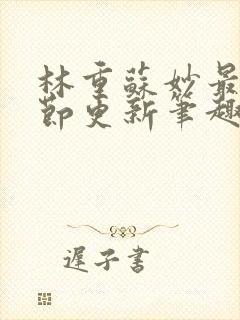 林重蘇妙最
節更新筆趣
遲子書